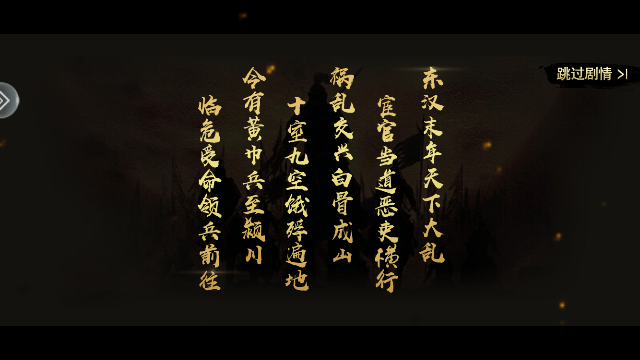 东汉末年天下大乱
宦官当道恶吏横行
祸乱交兴白骨成山
十室九空饿殍遍地
今有黄巾兵至颍川
临危受命领兵前往
跳过剧情